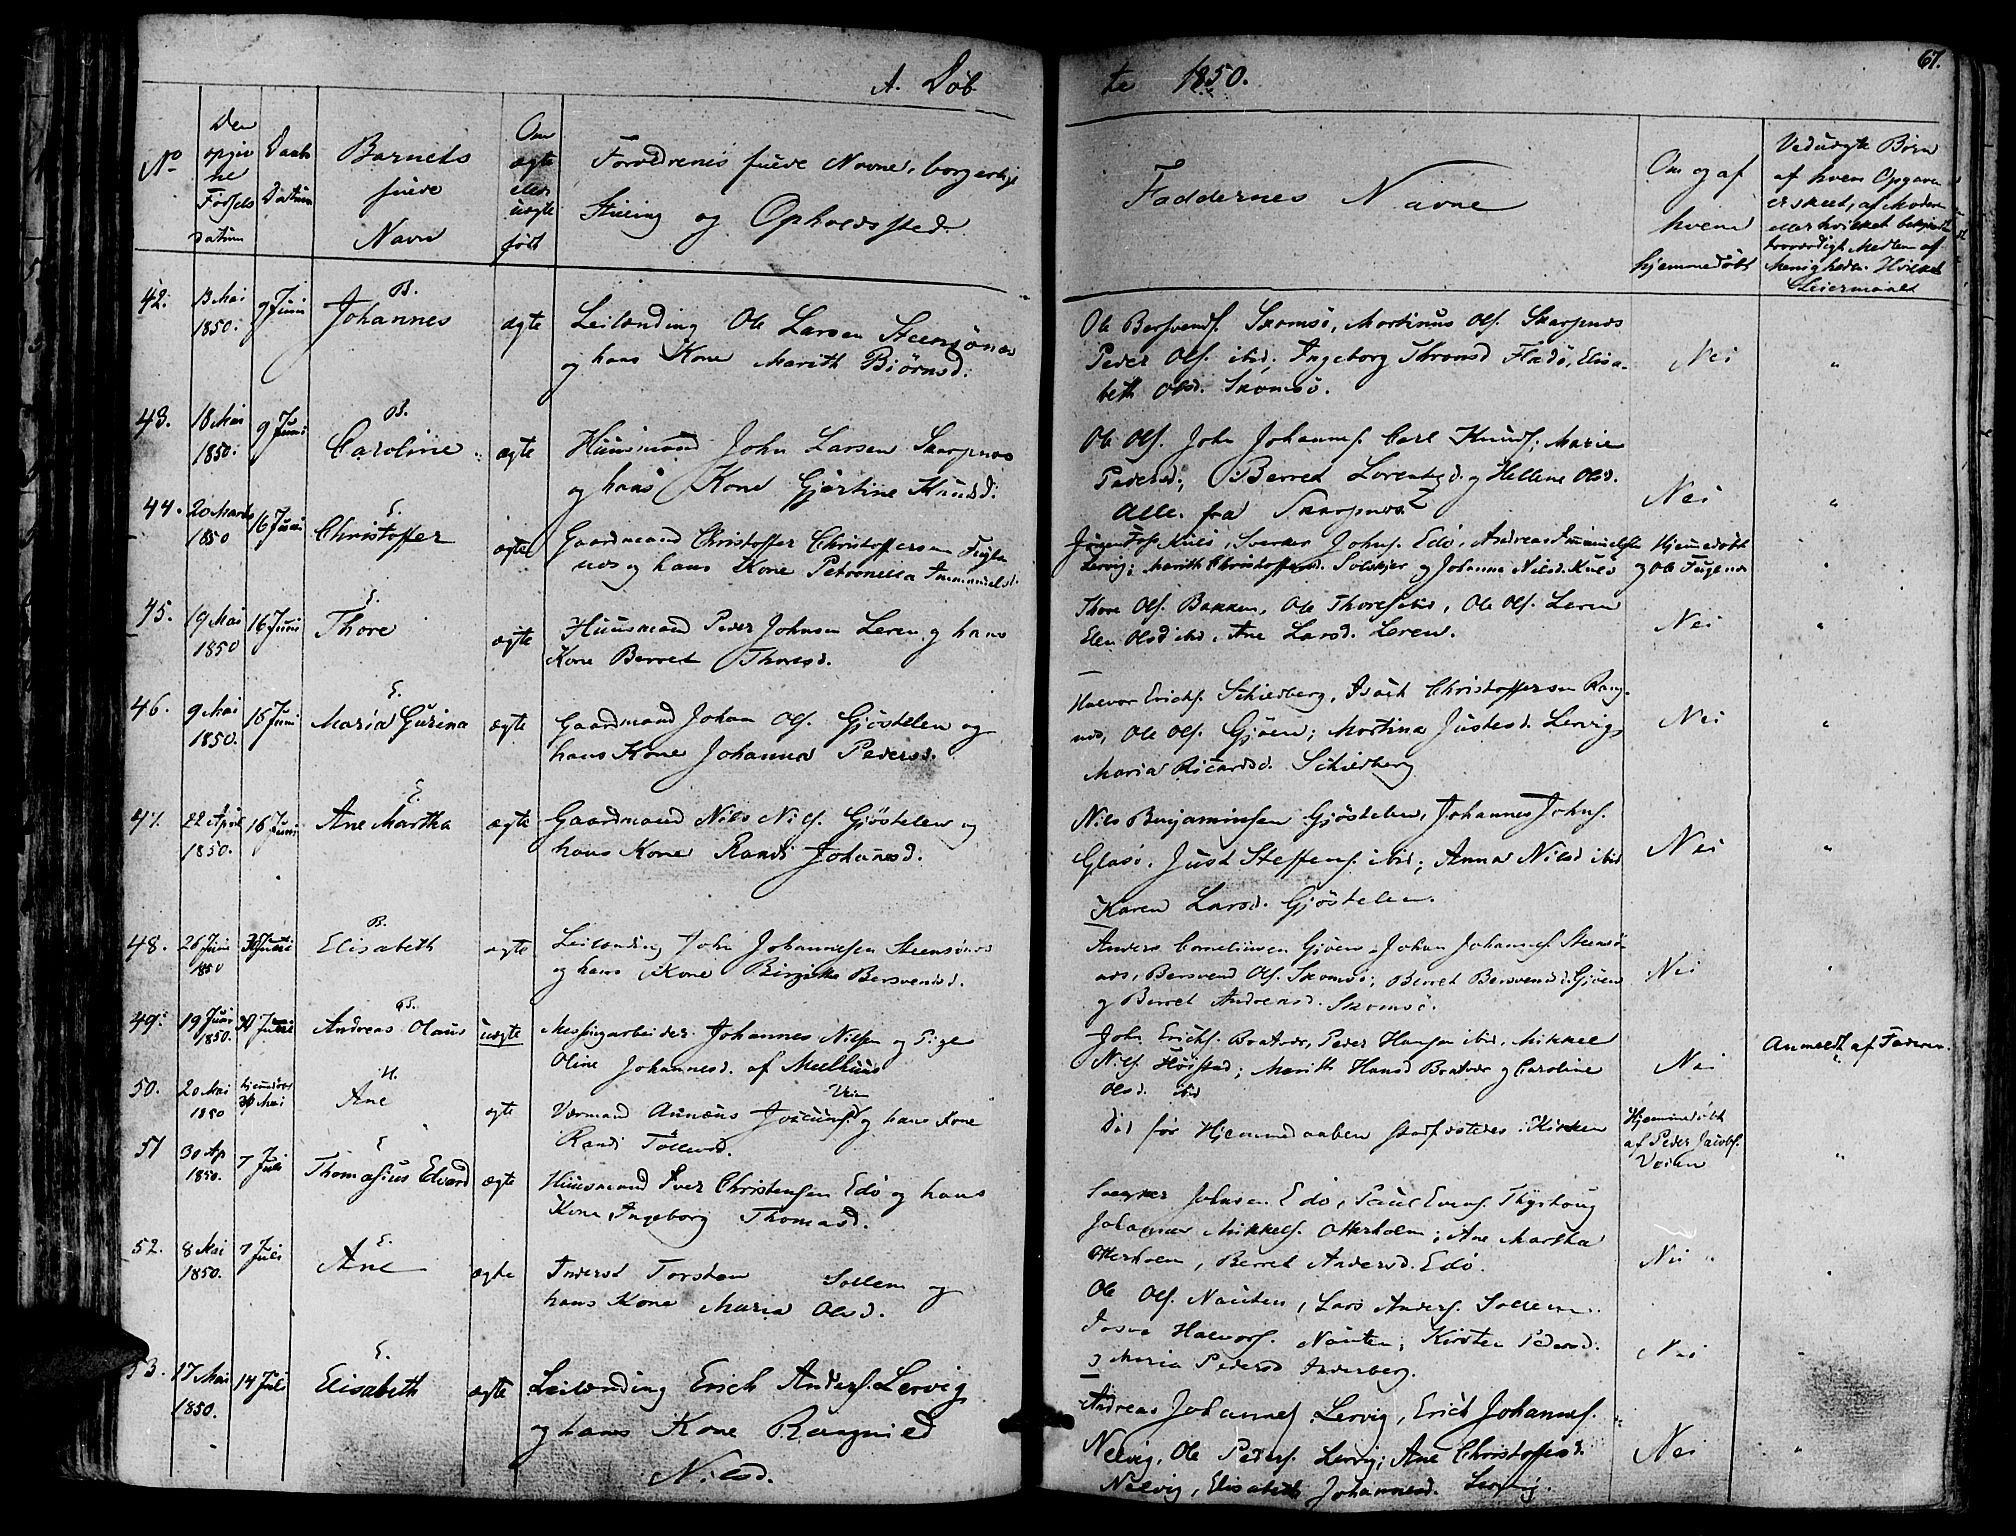 A. Døb
te 1850.
67.
No
Den opgivne Fødsels Datum
Daabs Datum
Barnets fulde Navn
Om ægte eller uægte født
Forældrenes fulde Navne, borgerlige
Stilling og Opholdssted.
Faddernes Navne
Om og af hvem hjemmedøbt
Ved uægte Børn
af hvem Opgaven
er skeet, af Moder
eller hvilket bekjendt
troværdigt Medlem af
Menigheden. Hvilket
Leiermaal
42. 13 Mai 1850. 9 Juni B. Johannes ægte Leilænding Ole Larsen Steensønæs
og hans Kone Marith Biörnsd.
Ole Bersvends. Skomsö, Martinus Ols. Skarpnæs
Peder Ols. ibid; Ingeborg Thronsd Fladö, Elisa-
beth Olsd. Skomsö.
Nei "
43. 18 Mai 1850. 9 Juni B. Caroline ægte Huusmand John Larsen Skarpnæs
og hans Kone Gjertine Knudsd.
Ole Ols. John Johannes. Carl Knuds; Marie
Pedersd; Berret Lorentsd. og Hellene Olsd.
Alle fra Skarpnæs
Nei "
44. 20 Marts 1850 16 Juni E. Christoffer ægte Gaardmand Christoffer Christoffersen Fugle
næs og hans Kone Petronella Immanuelsd.
Jørgen Kulö, Sverker Johns. Edö, Andreas Immanuelsen
Lervig; Marith Christoffersd. Solskjer og Johanna Nilsd. Kulö
Hjemmedøbt
og Ole Fuglenæs "
45. 19 Mai 1850 16 Juni E. Thore ægte Huusmand Peder Johnsen Leren og hans
Kone Berret Thoresd.
Thore Ols. Bakken, Ole Thores. ibid, Ole Ols. Leren
Elen Olsd ibid, Ane Larsd. Leren.
Nei "
46. 9 Mai 1850. 16 Juni E. Maria Gurina ægte Gaardmand Johan Ols. Gjöstelen og
hans Kone Johanna Pedersd.
Halvor Erichs. Schiedberg, Isach Christoffersen Rang-
næs, Ole Ols. Gjöen; Martina Justesd. Lervig,
Maria Ricardsd. Schiedberg
Nei "
47. 22 April 1850. 16 Juni E. Ane Martha ægte Gaardmand Nils Nils. Gjöstelen og
hans Kone Randi Johansd.
Nils Benjaminsen Gjöstelen, Johannes Johns.
Glasö. Just Steffens. ibid; Anna Nilsd ibid
Karen Larsd. Gjöstelen.
Nei "
48. 26 Juni 1850 30 Juni B. Elisabeth ægte Leilænding John Johannesen Steensönæs
og hans Kone Birgitte Bersvendsd.
Anders Corneliusen Gjöen, Johan Johannes. Steensö-
næs, Bersvend Ols. Skomsö; Berret Bersvendsd. Gjöen
og Berret Andreasd. Skomsö.
Nei "
49. 19 Juni 1850. 30 Juni B. Andreas Olaus uægte Messingarbeider Johannes Nilsen og Pige
Oline Johannesd. af Melhuus
John Erichs. Bratvær, Peder Hansen ibid. Mikkel
Nils. Höistad; Marith Hansd Bratvær og Caroline
Olsd. ibid
Nei Anmeldt af Faderen. "
50. 20 Mai 1850 hjemmedøbt 30 Mai H. Ane ægte Værmand Aunæus Joacums. Veien og hans Kone
Randi Tollevsd.
Död för Hjemmedaaben stadfæstedes i Kirken
Hjemmedøbt
af Peder Jacobs.
Veien "
51 30 Ap 1850. 7 Juli E Thomasius Edvard ægte Huusmand Iver Christensen Edö og hans
Kone Ingeborg Thomasd.
Sverker Johnsen Edö, Paul Evens. Thyshoug
Johannes Mikkels. Otterholm; Ane Martha
Otterholm, Berret Andersd. Edö.
Nei "
52. 8 Mai 1850. 7 Juli E. Ane ægte Inderst Torsten Sollem og
hans Kone Maria Olsd.
Ole Ols. Nausten, Lars Anders. Sollem
Halvors. Nausten; Kirsten Pedersd.
og Maria Pedersd Inderberg.
Nei "
53. 17 Mai 1850. 14 Juli E. Elisabeth ægte Leilænding Erich Anders. Lervig
og hans Kone Rangnild
Nilsd.
Andreas Johannes. Lervig, Erich Johannes.
Nelvig, Ole Peders. Lervig; Ane Christoffersd.
Nelvig, Elisabeth Johannesd. Lervig.
Nei "